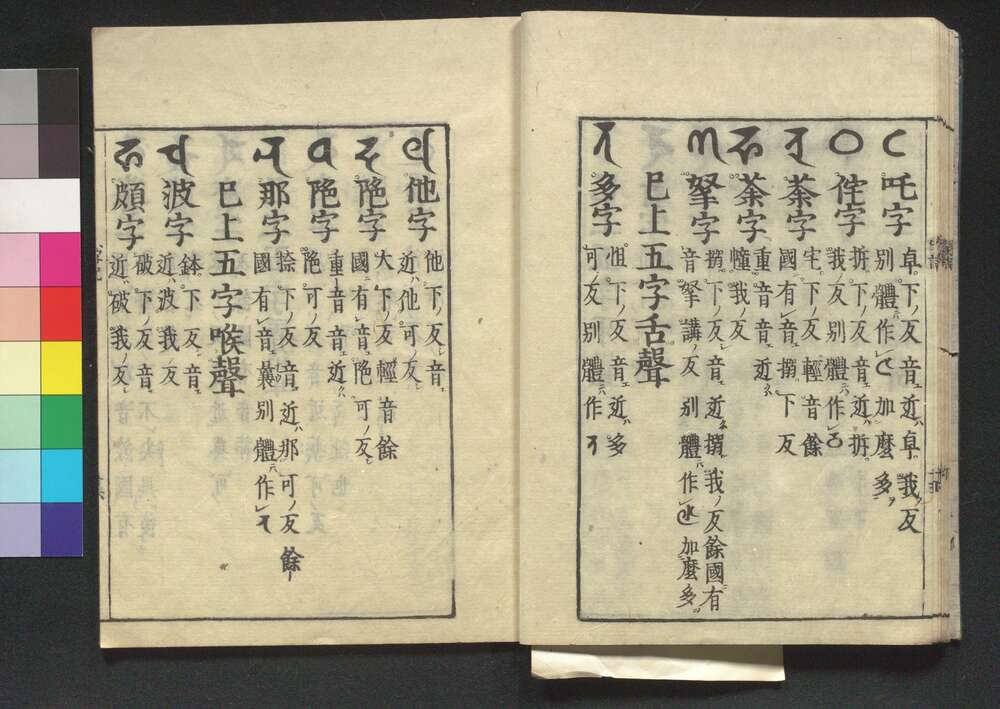 吒字 卓下ノ反音近卓我ノ反
別體作 加麼多
侘字 拆下ノ反音近拆
我反別體作
荼字 宅下ノ反輕音餘
國有音搦下反
荼字 重音音近
幢我反
拏字 搦下ノ反音近搦我ノ反餘國有
音拏講ノ反別體作 加麼多
巳上五字舌聲
多字 怛下ノ反音近多
可反別體作
他字 他下ノ反音
近他可反
陁字 大下ノ反輕音餘
國有音陁可ノ反
陁字 重音音近
陁可反
那字 捺下ノ反音近那可ノ反餘
國有音曩別體作
巳上五字喉聲
波字 鉢下反音
近波我反
頗字 破下ノ反音
近破我ノ反